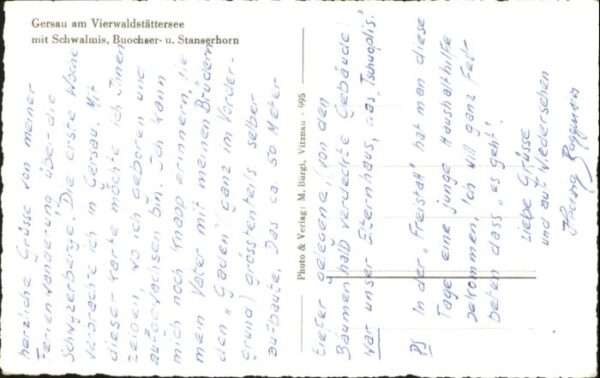 Gersau am Vierwaldstättersee
mit Schwalmis, Buochser- u. Stanserhorn
herzliche Grüsse von meiner
Ferienwanderung über die
Schwyzerberge. Die erste Woche
verbrachte ich in Gersau. Mit
dieser Karte möchte ich Ihnen
zeigen wo ich geboren und
aufgewachsen bin. Ich kann
mich noch knapp erinnern, wie
mein Vater mit meinen Brüdern
den „Gaden" (ganz im Vorder-
grund) grösstenteils selber
aufbaute. Das ca 50 Meter
Photo & Verlag: M. Bürgi, Vitznau - 995
tiefer gelegene, (von den
Bäumen halb verdeckte Gebäude)
war unser Elternhaus, das
PS In der „Freistatt" hat man diese
Tage eine junge Haushalthilfe
bekommen. Ich will ganz fest
beten dass „es geht".
Liebe Grüsse
und auf Wiedersehen